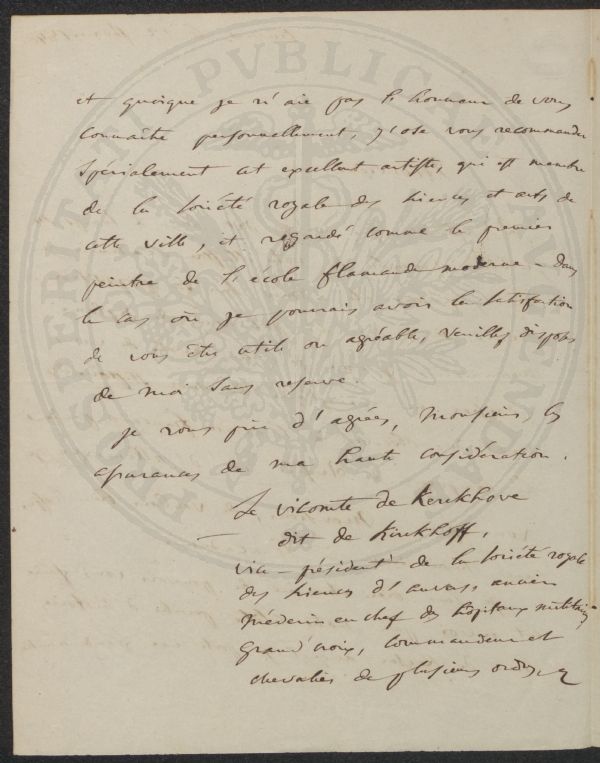 PROSPERITATI PVBLICAE AVGENT
et quoique je n'aie pas l'honneur de vous
connaître personnellement, j'ose vous recommander
spécialement cet excellent artiste, qui est membre
de la société royale des sciences et arts de
cette ville, et regardé comme le premier
peintre de l'école flamande moderne - Dans
le cas où je pourrais avoir la satisfaction
de vous être utile ou agréable, veuillez disposer
de moi sans reserve.
je vous prie d'agréer, Monsieur, les
assurances de ma haute considération.
Le vicomte de Kerckhove
dit de Kirckhoff,
vice-président de la société royale
des sciences d'anvers, ancien
médecin en chef des hôpitaux militaires,
grand'croix, commandeur et
chevalier de plusieurs ordres